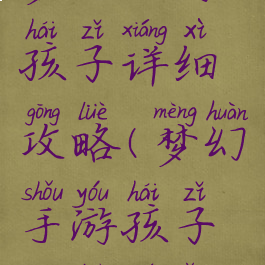 hái zǐ xiáng xì
孩子详细
gōng lüè mèng huàn
攻略(梦幻
shǒu yóu hái zǐ
手游孩子